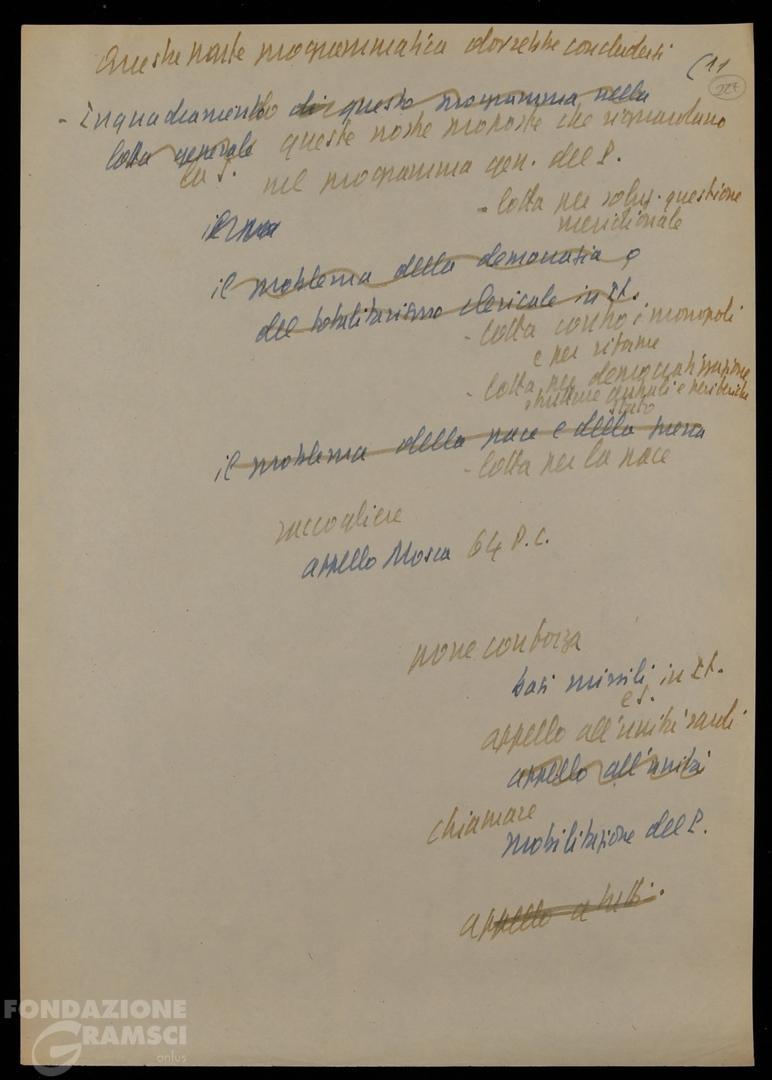 Queste parte programmatica dovrebbe concludersi
(11
227
- Inquadramento di questo programma nella
lotta generale queste nostre proposte che riguardano
la S. nel programma gen. del P.
- lotta per soluz. questione
meridionale
il problema della democrazia e
del totalitarismo clericale in It.
- lotta contro i monopoli
e per riforme
- lotta per democratizzazione
strutture centrali e periferiche
Stato
il problema della pace e della guerra
- lotta per la pace
raccogliere
appello Mosca 64 P.C.
porre con forza
basi missili in It.
e S.
appello all'unità sardi
appello all'unità
chiamare
mobilitazione del P.
appello a tutti.
FONDAZIONE
GRAMSCI
onlus